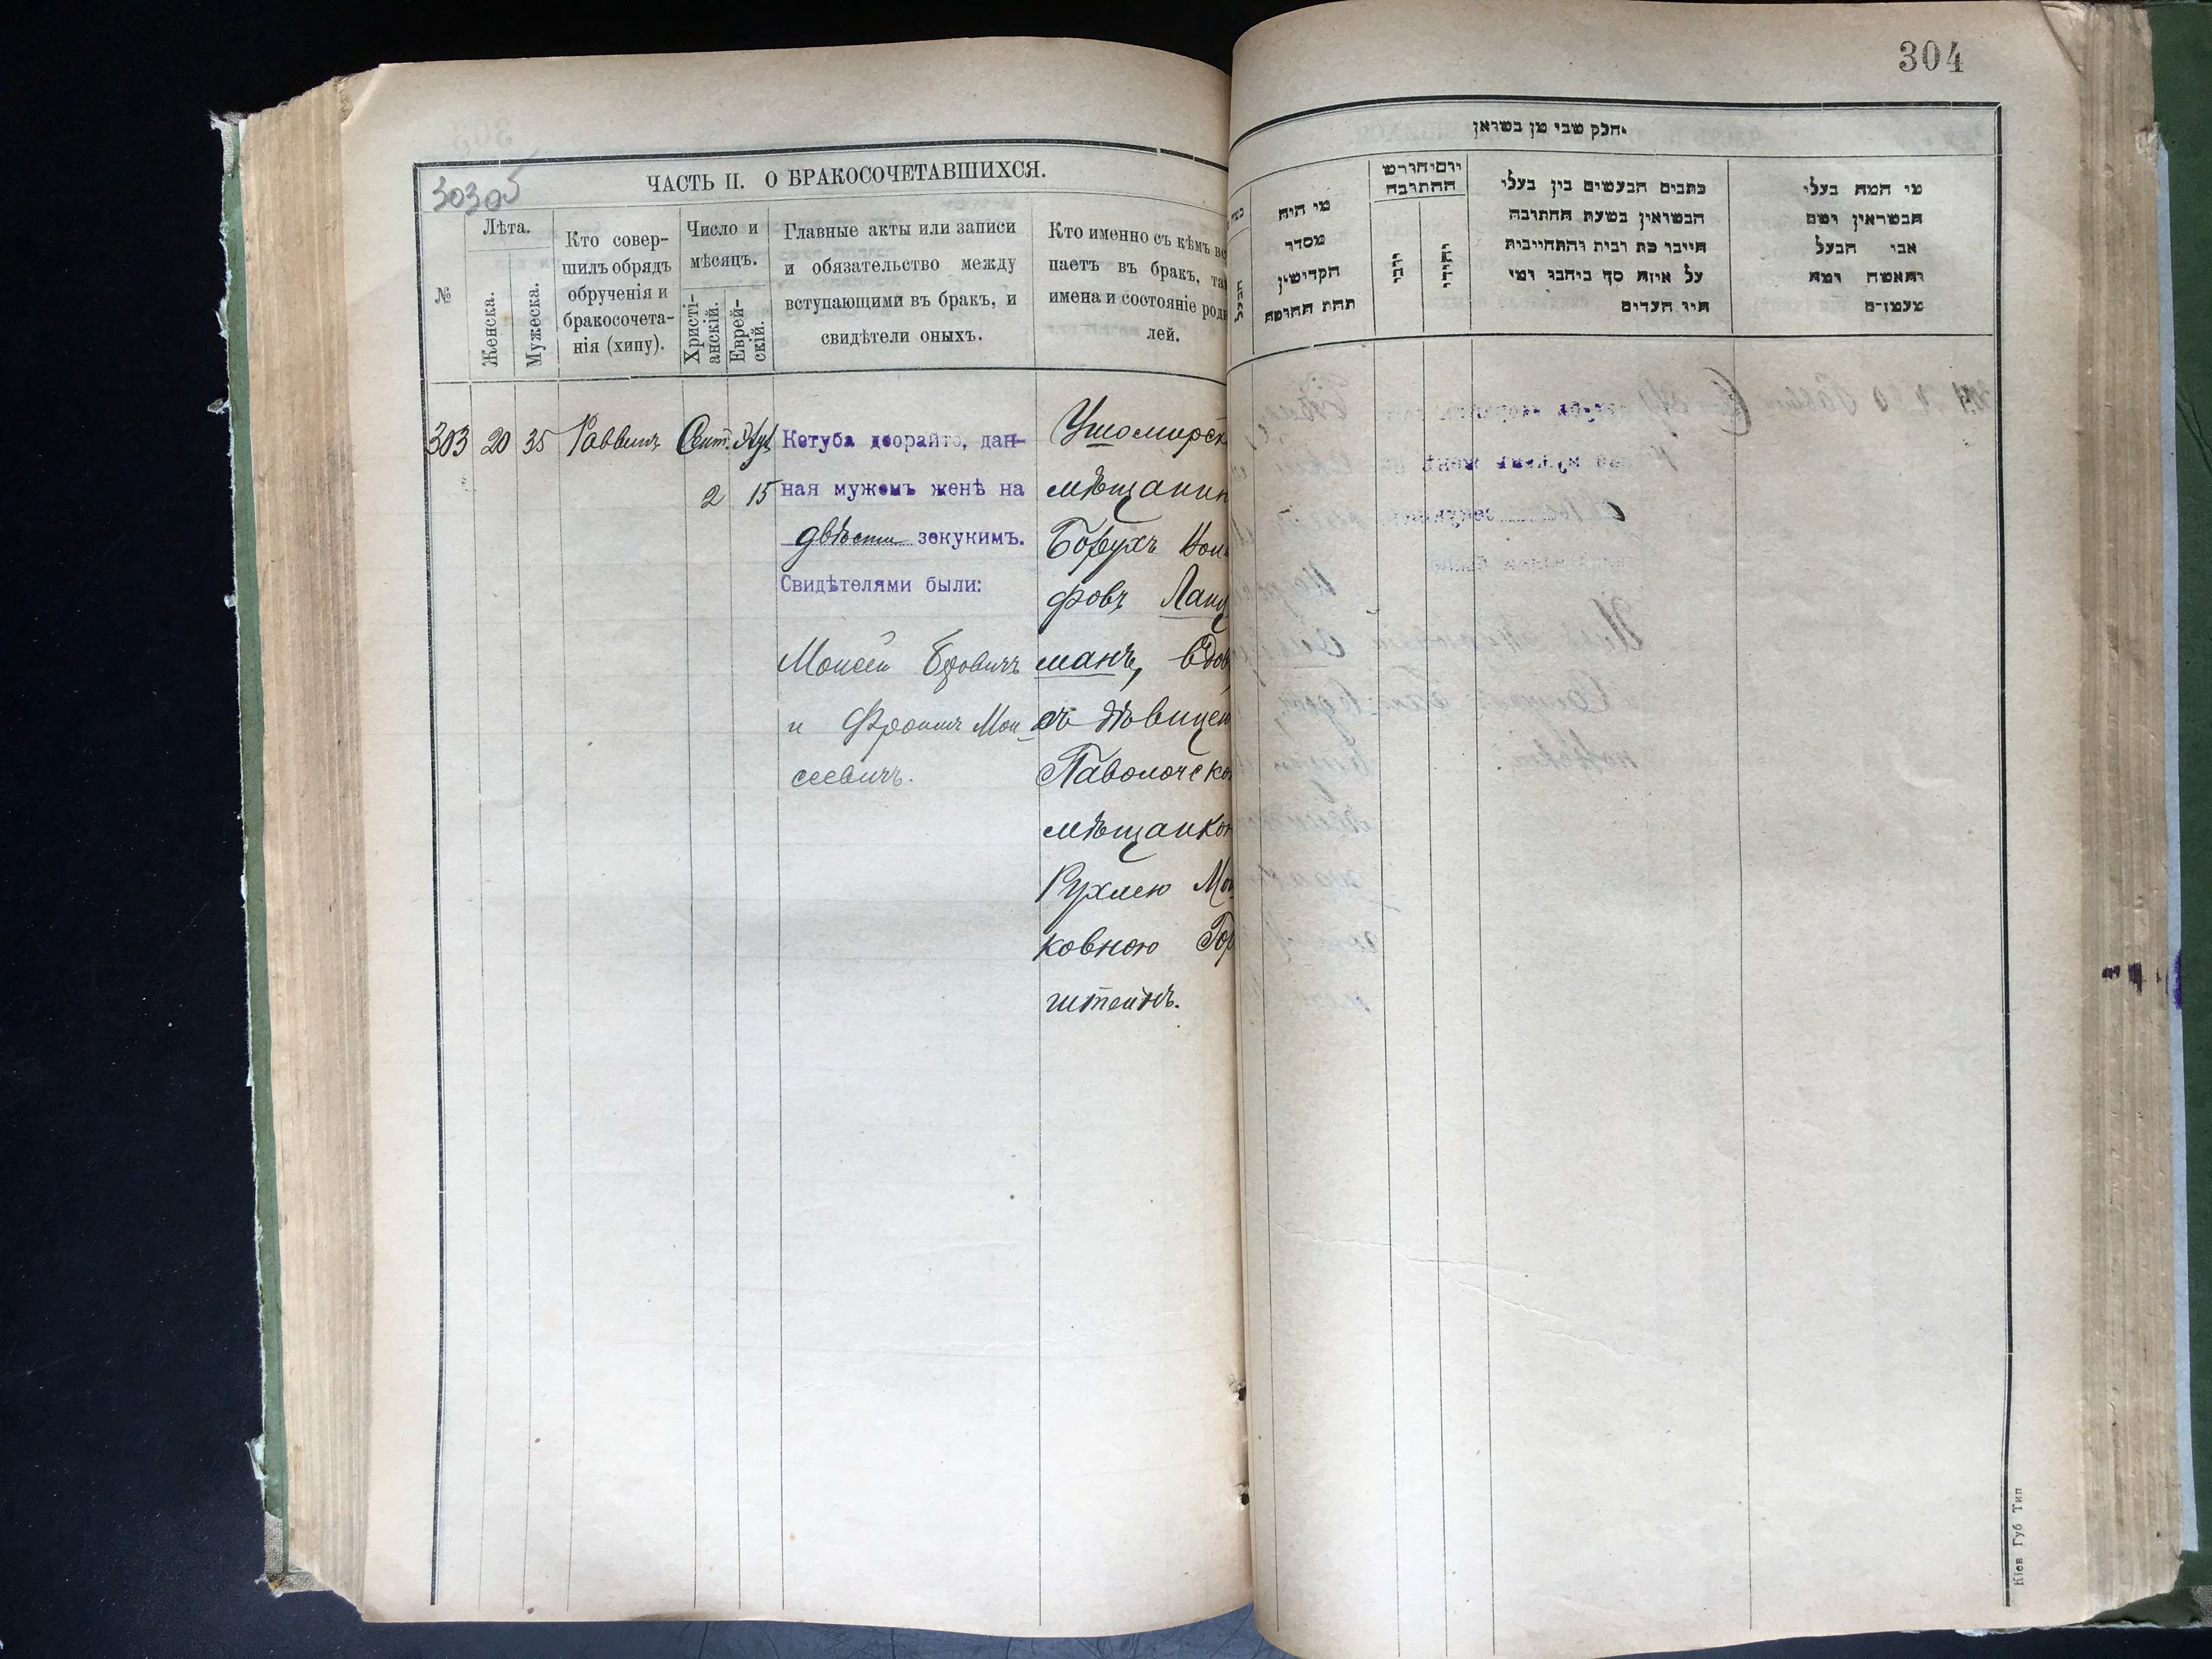 304
ЧАСТЬ II. О БРАКОСОЧЕТАВШИХСЯ.
30305
№
Лѣта.
Женска.
Мужеска.
Кто совер-
шилъ обрядъ
обрученія и
бракосочета-
нія (хипу).
Число и
мѣсяцъ.
Христі-
анскій.
Еврей-
скій.
Главные акты или записи
и обязательство между
вступающими въ бракъ, и
свидѣтели оныхъ.
Кто именно съ кѣмъ вс
паетъ въ бракъ, та
имена и состояніе род
лей.
303 20 35 Раввинъ Сент.
2 15
Кетуба деорайто, дан-
ная мужемъ женѣ на
двѣсти зекукимъ.
Свидѣтелями были:
Моисей
и Фроимъ Мои-
сеевичъ.
Ушомирск
мѣщанин
Борухъ
фовъ Ланц
манъ, вдов
съ дѣвицею
Паволочско
мѣщанкою
Рухлею Мош
ковною Гор
штейнъ.
חלק שני מן נשואין
מי היה
מסדר
הקדישין
תחת החופה
הבעל
יום וחודש
החתונה
כתבים הנעשים בין בעלי
הנשואין בשעת החתונה
חיובי כת ובית והתחייבות
על איזה סך ביחבו ומי
היו העדים
מי המה בעלי
הנשואין ושם
אבי הבעל
והאשה ומה
מעמדם
Кіев Губ Тип